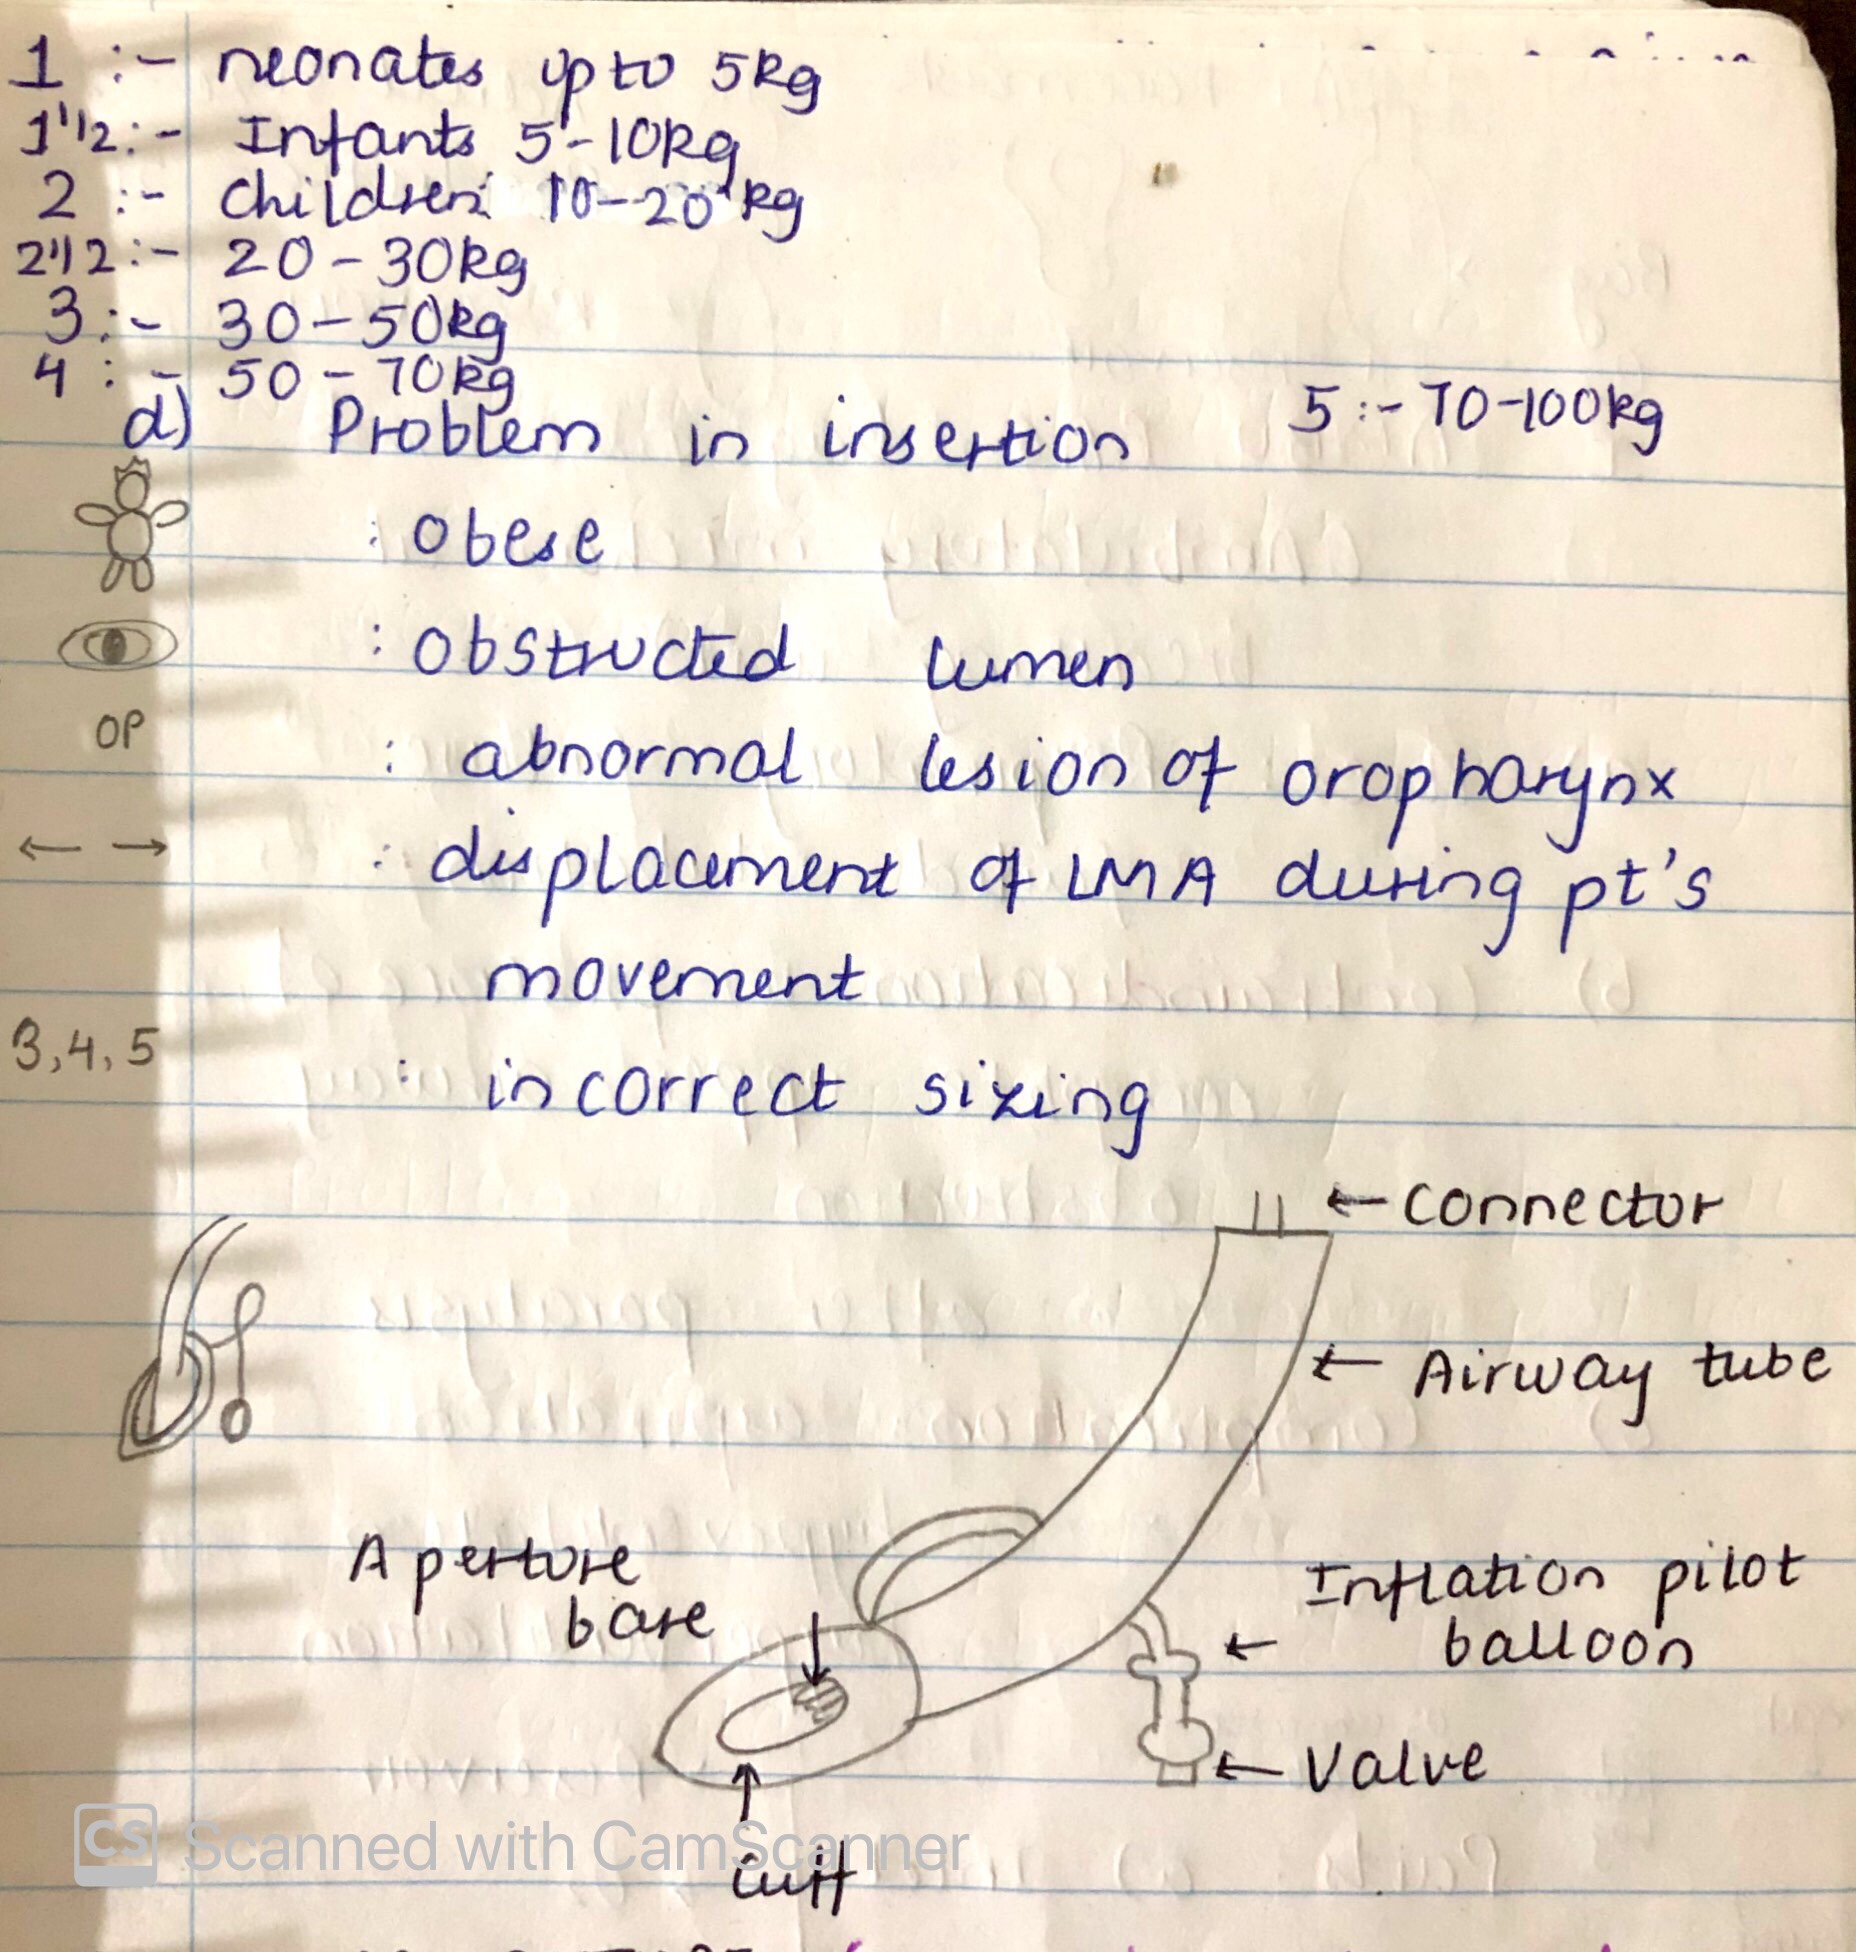 1 :- neonates upto 5kg
1 1/2 :- Infants 5-10kg
2 :- children 10-20 kg
2 1/2 :- 20-30kg
3 :- 30-50kg
4 :- 50-70kg
5 :- 70-100kg
d) Problem in insertion
: obese
: obstructed lumen
OP
: abnormal lesion of oropharynx
← → : displacement of LMA during pt's
movement
3,4,5
: incorrect sizing
← Connector
← Airway tube
Aperture
bare
Inflation pilot
← balloon
← Valve
cuff
CS Scanned with CamScanner